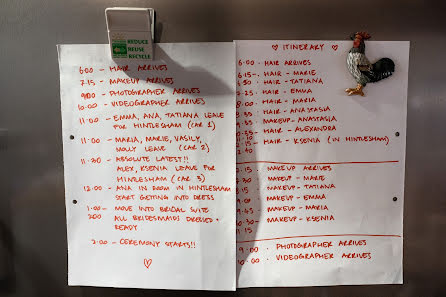 REDUCE
REUSE
RECYCLE
6:00 - HAIR ARRIVES
7.15 - MAKEUP ARRIVES
9:00 - PHOTOGRAPHER ARRIVES
10:00 - VIDEOGRAPHER ARRIVES
11:00 - EMMA, ANA, TATIANA LEAVE
FOR HINTLESHAM (CAR 1)
11:00 - MARIA, MARIE, VASILY,
MOLLY LEAVE (CAR 2)
11:30 - ABSOLUTE LATEST!!
ALEX, KSENIA LEAVE FOR
HINTLESHAM (CAR 3)
12:00 - ANA IN ROOM IN HINTLESHAM
START GETTING INTO DRESS
1:00 - MOVE INTO BRIDAL SUITE
2:00 ALL BRIDESMAIDS DRESSED +
READY
2:00 - CEREMONY STARTS!!
ITINERARY
6:00 - HAIR ARRIVES
6:15 - HAIR - MARIE
HAIR - TATIANA
HAIR - EMMA
8:00 - HAIR - MARIA
HAIR - ANASTASIA
MAKEUP - ANASTASIA
HAIR - ALEXANDRA
HAIR - KSENIA (IN HINTLESHAM)
MAKEUP ARRIVES
MAKEUP - MARIE
MAKEUP - TATIANA
MAKEUP - EMMA
MAKEUP - MARIA
MAKEUP - KSENIA
9:00 - PHOTOGRAPHER ARRIVES
10:00 - VIDEOGRAPHER ARRIVES